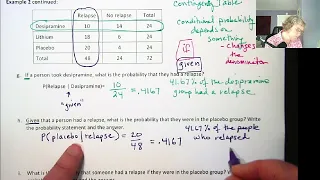 Example 2 continued:
Contingency Table:
Relapse No relapse Total
Desipramine 10 14 24
Lithium 18 6 24
Placebo 20 4 24
Total 48 24 72
conditional probability
depends on
something
- changes
the
denominator
given
If a person took desipramine, what is the probability that they had a relapse?
P(Relapse | Desipramine)= 10/24 = .4167
41.67% of the desipramine
group had a relapse.
"given"
b. Given that a person had a relapse, what is the probability that they were in the placebo group? Write
the probability statement and the answer.
P(placebo | relapse) = 20/48 = .4167
41.67% of the people
who relapsed
What is the
that someone had a relapse if they were in the placebo group?